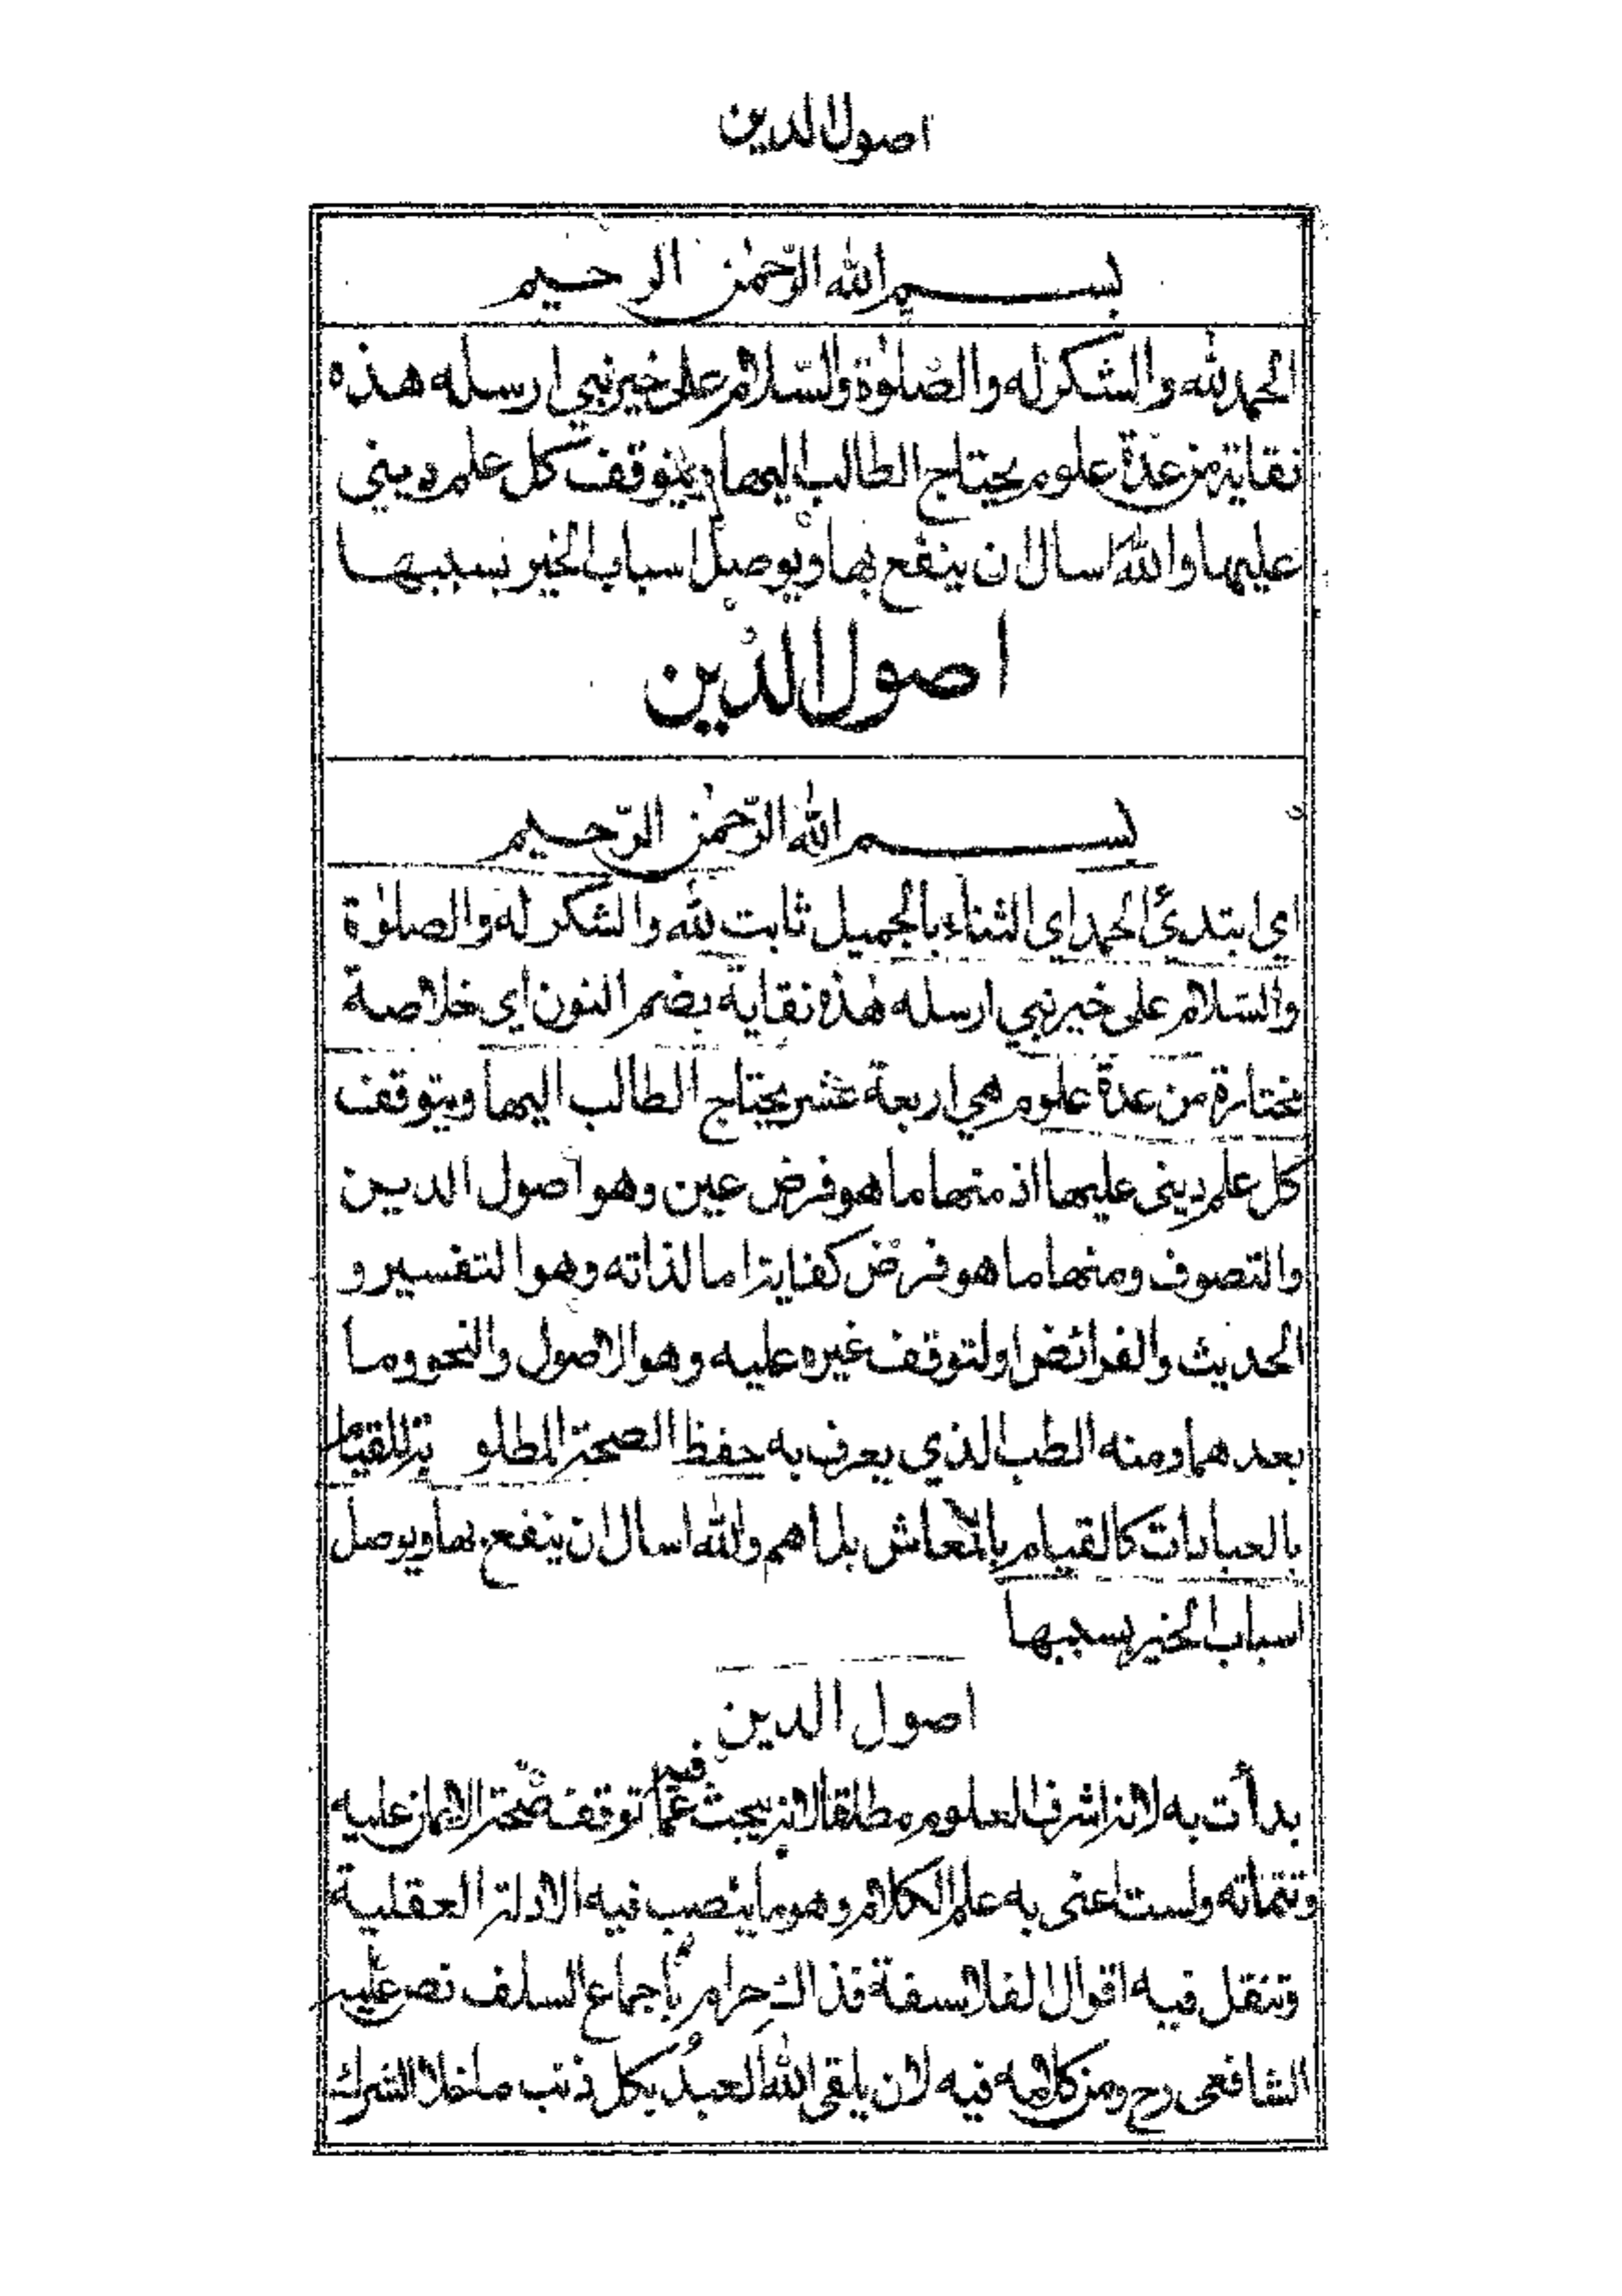 اصول الدين
بسم الله الرّحمٰن الرحيم
الحمد لله والشكر له والصّلوٰة والسّلام على خير نبي ارسله هذه
نقاية من عدّة علوم يحتاج الطالب اليها ويتوقف كل علم ديني
عليها والله اسال ان ينفع بها ويوصل اسباب الخير بسببها
اصول الدين
بسم الله الرّحمٰن الرّحيم
اي ابتدئ الحمد اي الثناء بالجميل ثابت لله والشكر له والصلوٰة
والسّلام على خير نبي ارسله هٰذه نقاية بضم النون اي خلاصة
مختارة من عدة علوم هي اربعة عشر يحتاج الطالب اليها ويتوقف
كل علم ديني عليها اذ منها ما هو فرض عين وهو اصول الدين
والتصوف ومنها ما هو فرض كفاية اما لذاته وهو التفسير و
الحديث والفرائض او لتوقف غيره عليه وهو الاصول والنحو وما
بعدهما ومنه الطب الذي يعرف به حفظ الصحة المطلو بة للقيام
بالعبادات كالقيام بالمعاش بل اهم والله اسال ان ينفع بها ويوصل
اسباب الخير بسببها
اصول الدين
بدأت به لانه اشرف العلوم مطلقا لانه يبحث فيه عما توقف صحة الايمان عليه
وتتماته ولست اعنى به علم الكلام وهو ما ينصب فيه الادلة العقلية
وتنقل فيه اقوال الفلاسفة فذاك حرام باجماع السلف نص عليه
الشافعى رح ومن كلامه فيه لان يلقى الله العبد بكل ذنب ما خلا الشرك